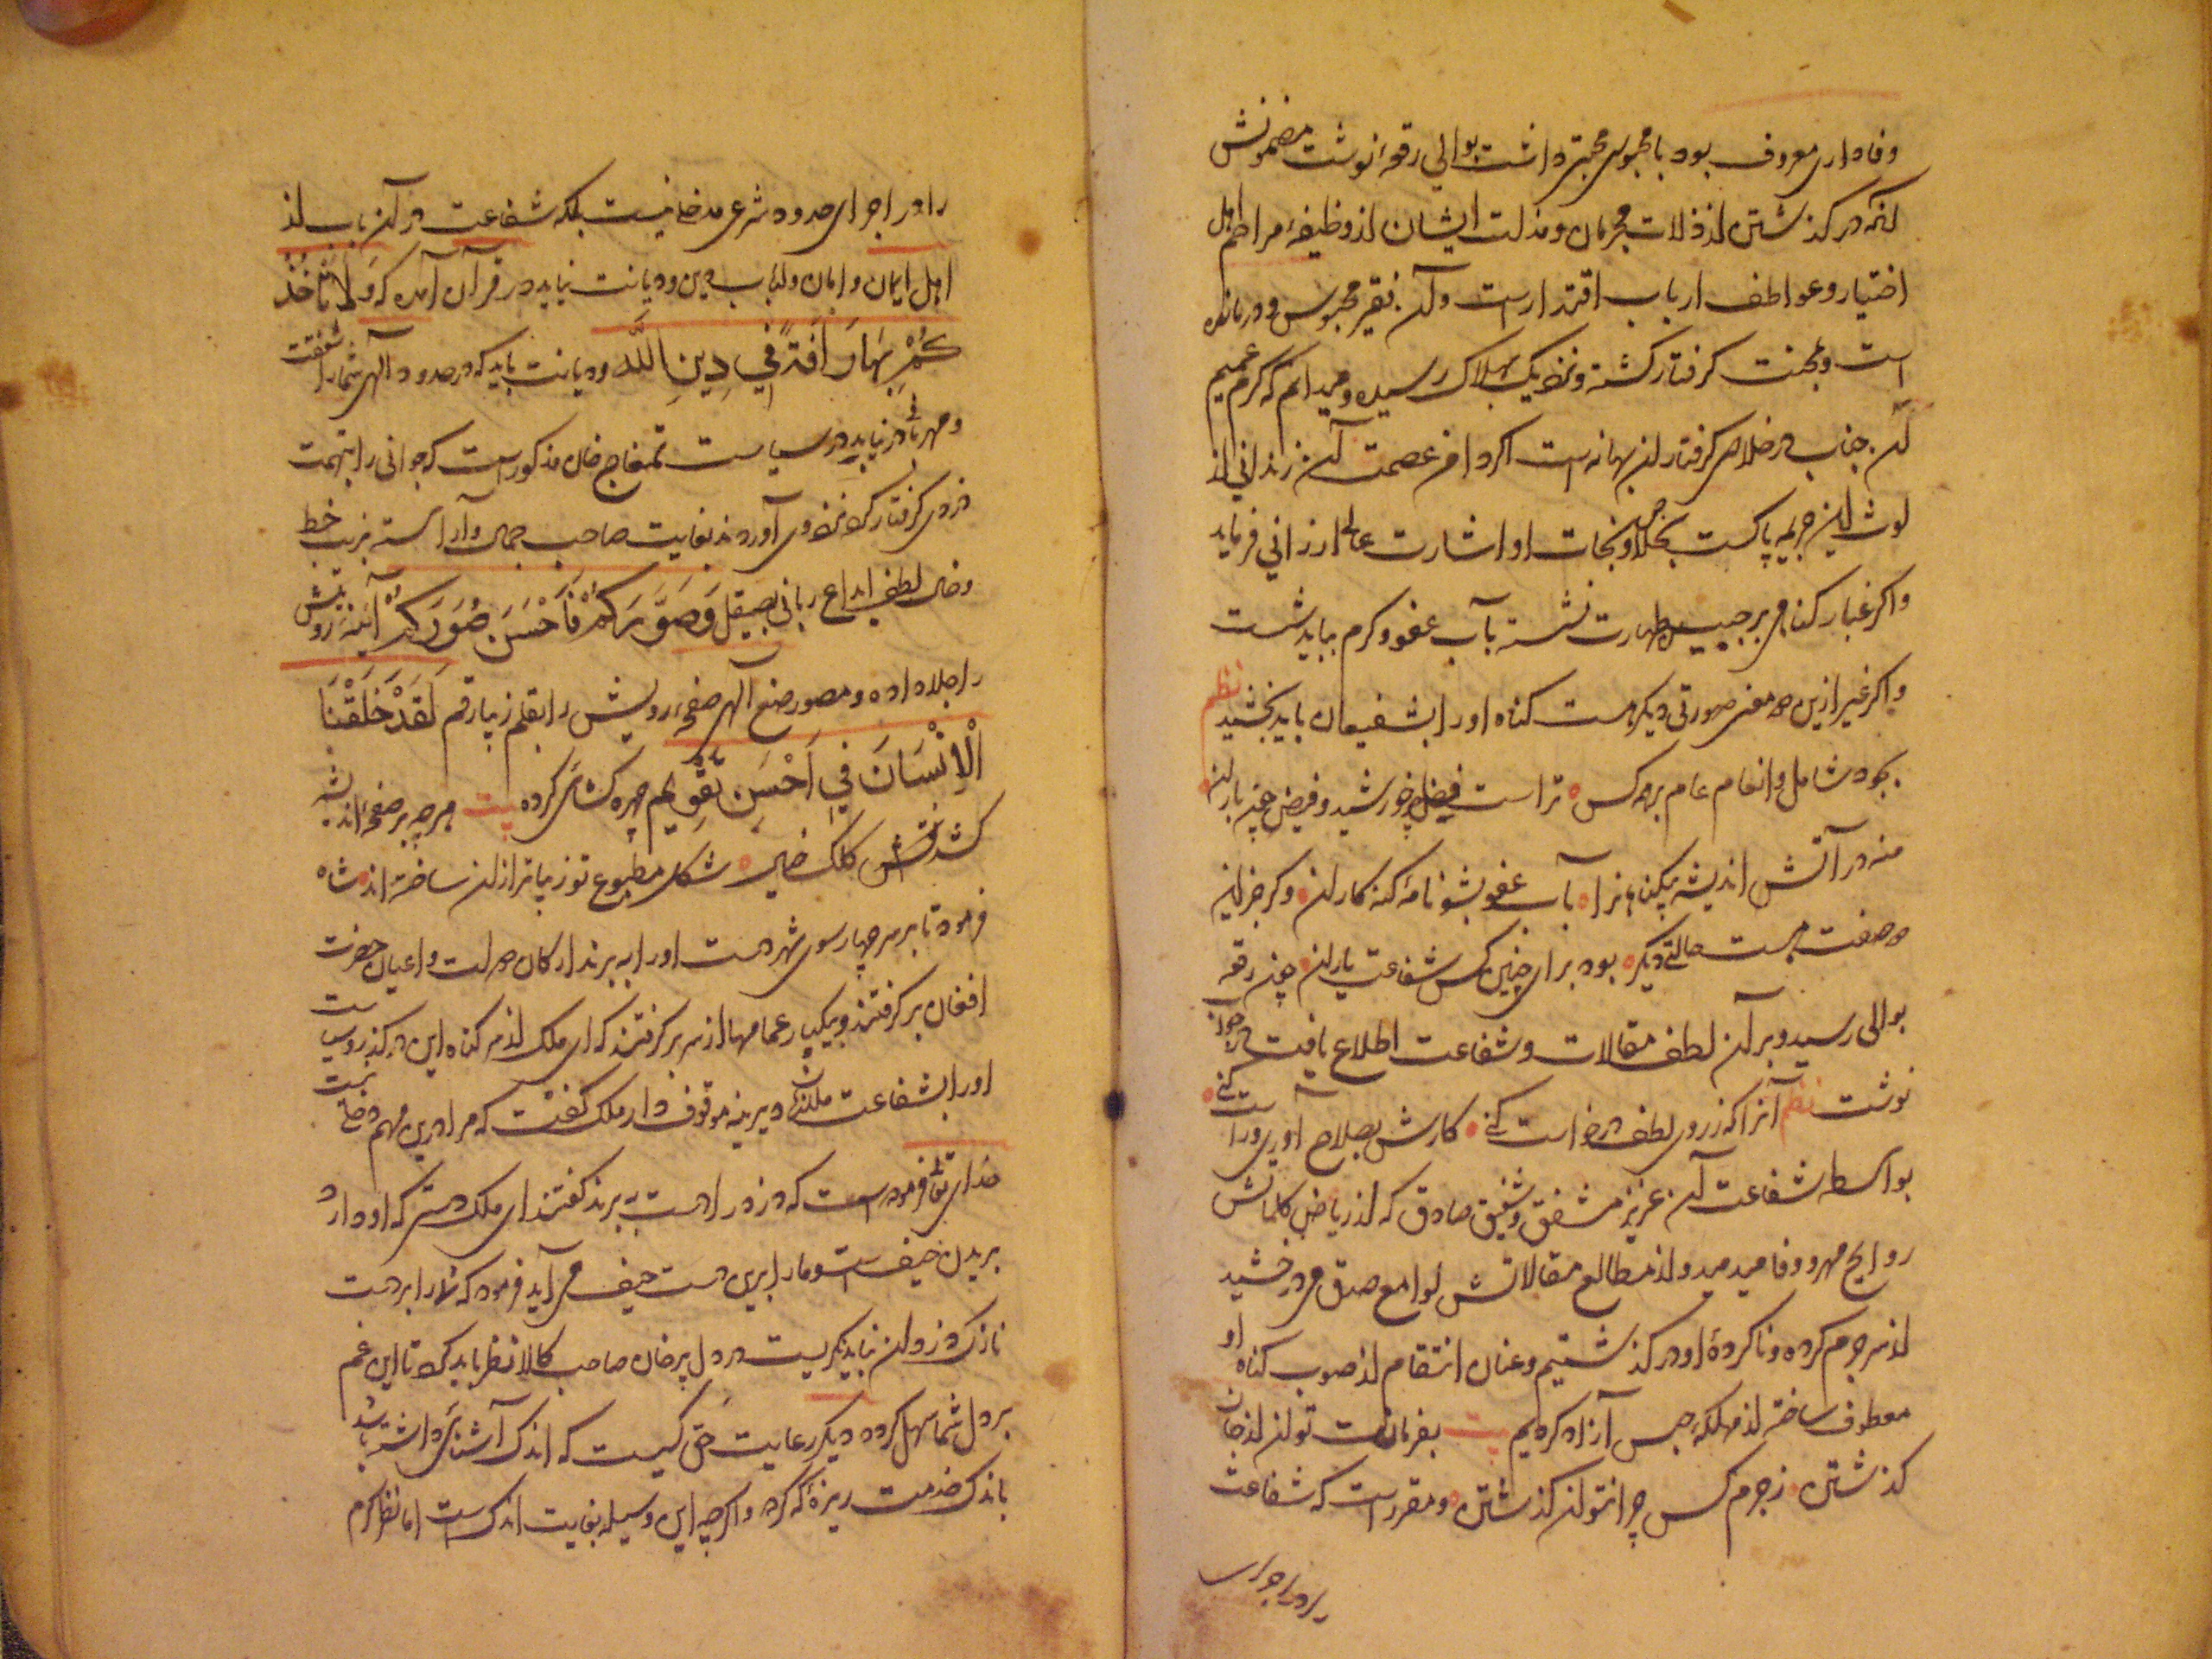 وفاداری معروف بود با محبوس محبتی داشت بوالی رقعهٔ نوشت مضمونش
آنکه در گذشتن از ذلات مجرمان و مذلت ایشان از وظیفهٔ مراحم اهل
اختیار و عواطف ارباب اقتدار است و آن فقیر محبوس و درمانده
است و بمحنت گرفتار گشته و نزدیک بهلاک رسیده و میدانم که کرم عمیم
آن جناب در خلاص گرفتاران بهانه است اگر دامن عصمت آن زندانی از
لوث این جریمه پاکست بخلاص و نجات او اشارت عالی ارزانی فرماید
و اگر غبار گناهی بر جبین طهارت نشسته بآب عفو و کرم بباید شست
و اگر غیر ازین دو معنی صورتی دیگر است گناه او را بشفیعان باید بخشید نظم
بجود شامل و انعام عام بر همه کس تراست فیض خورشید و فیض چون باران
منه در آتش اندیشه بیگناهانرا بآب عفو بشو نامهٔ گنه کاران وگر جز این
دو صفت هست حالتی دیگر بود برای چنین کس شفاعت یاران چون رقعه
بوالی رسید و بر آن لطف مقالات و شفاعت اطلاع یافت در جواب
نوشت نظم آنرا که ز روی لطف درخواست کنی کارش بصلاح آوری و راست کنی
بواسطه شفاعت آن عزیز مشفق و شفیق صادق که از ریاض کلماتش
روایح مهر و وفا میدمید و از مطالع مقالاتش لوامع صدق می درخشید
از سر جرم کرده و ناکردهٔ او در گذشتیم و عنان انتقام از صوب گناه او
معطوف ساخته از مهلکهٔ حبس آزاد کردیم بیت بفرمانت توان از جان
گذشتن ز جرم کس چرا نتوان گذشتن و مقرر است که شفاعت
را در اجرای
را در اجرای حدود شرعی مدخل نیست بلکه شفاعت در آن باب از
اهل ایمان و ارباب دین و دیانت نیاید در قرآن آمده که وَلَا تَأْخُذْ
كُمْ بِهِمَا رَأْفَةٌ فِي دِينِ اللَّهِ و دیانت باید که در حدود الهی شما را شفقت
و مهربانی در نیاید در سیاست تمغاج خان مذکور است که جوانی را بتهمت
دزدی گرفتار کرده نزد وی آوردند بغایت صاحب جمال و آراسته بزیب خط
و خال لطف ابداع ربانی بصیقل وَصَوَّرَكُمْ فَأَحْسَنَ صُوَرَكُمْ آینهٔ رویش
را جلا داده و مصور صنع الهی صفحهٔ رویش را بقلم زیبا رقم لَقَدْ خَلَقْنَا
الْإِنْسَانَ فِي أَحْسَنِ تَقْوِيمٍ چهره گشائی کرده بیت هر چه بر صفحهٔ اندیشه
کشد نقش کلک خیال شکل مطبوع تو زیباتر از آن ساخته اند شاه
فرمود تا بر سر چهار سوی شهر دست او را ببرند ارکان دولت و اعیان حضرت
افغان بر گرفتند و بیکبار عمامها از سر بر گرفتند که ای ملک از سر گناه این در گذر و سیاست
او را بشفاعت بندگان دیرینه موقوف دار ملک گفت که مرا درین مهم دخلی نیست
خدای تعالی فرموده است که دزد را دست ببرند گفتند ای ملک دستی که او دارد
بریدن حیف است و ما را برین دست حیف می آید فرمود که شما را بر دست
نازک دزدان نباید نگریست در دل پر خان صاحب کالا نظر باید کرد تا این غم
بر دل شما سهل گردد دیگر رعایت حق کیست که اندک آشنائی داشته باشد
باندک خدمت ریزهٔ که کرده و اگر چه این وسیله بغایت اندک است اما نظر کرم